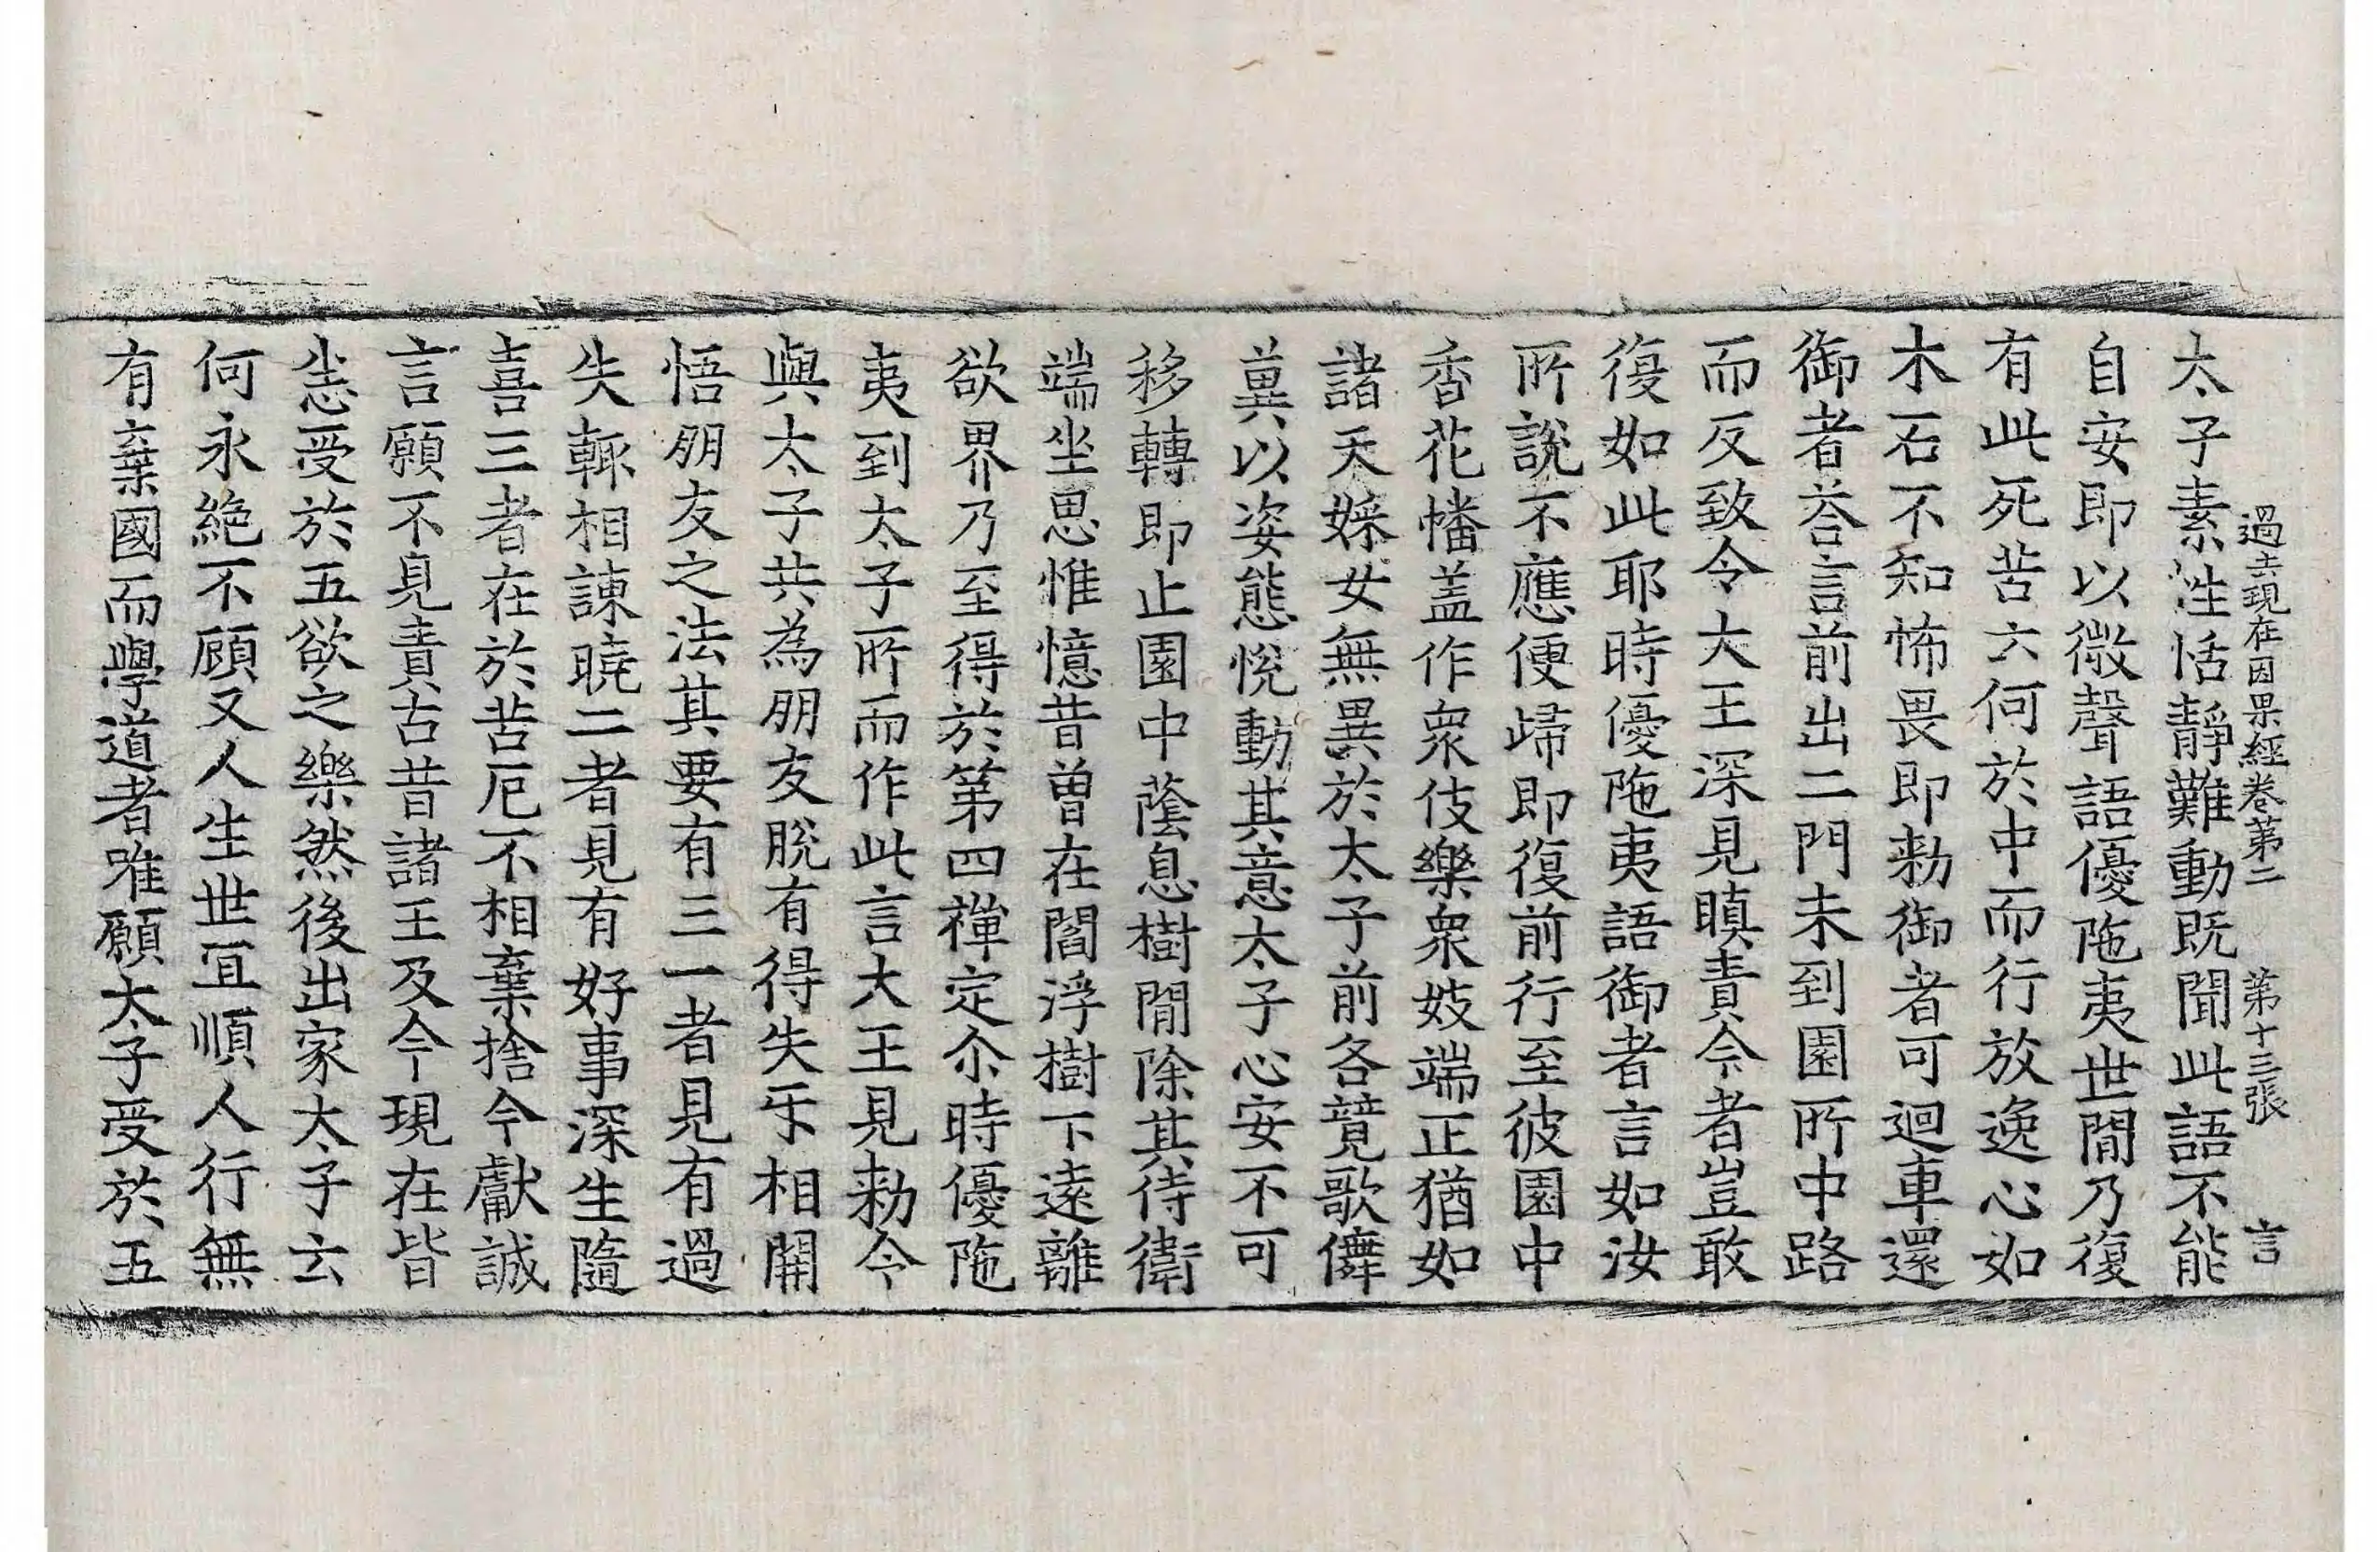 過去現在因果經卷第二　第十三張　言
太子素性恬靜難動既聞此語不能
自安即以微聲語優陁夷世間乃復
有此死苦云何於中而行放逸心如
木石不知怖畏即勑御者可迴車還
御者荅言前出二門未到園所中路
而反致令大王深見瞋責今者豈敢
復如此耶時優陁夷語御者言如汝
所說不應便歸即復前行至彼園中
香花幡盖作衆伎樂衆妓端正猶如
諸天婇女無異於太子前各競歌儛
冀以姿態悅動其意太子心安不可
移轉即止園中蔭息樹間除其侍衛
端坐思惟憶昔曾在閻浮樹下遠離
欲界乃至得於第四禪定尒時優陁
夷到太子所而作此言大王見勑令
與太子共為朋友脫有得失互相開
悟朋友之法其要有三一者見有過
失輒相諫曉二者見有好事深生隨
喜三者在於苦厄不相棄捨今獻誠
言願不見責古昔諸王及今現在皆
悉受於五欲之樂然後出家太子云
何永絕不顧又人生世宜順人行無
有棄國而學道者唯願太子受於五